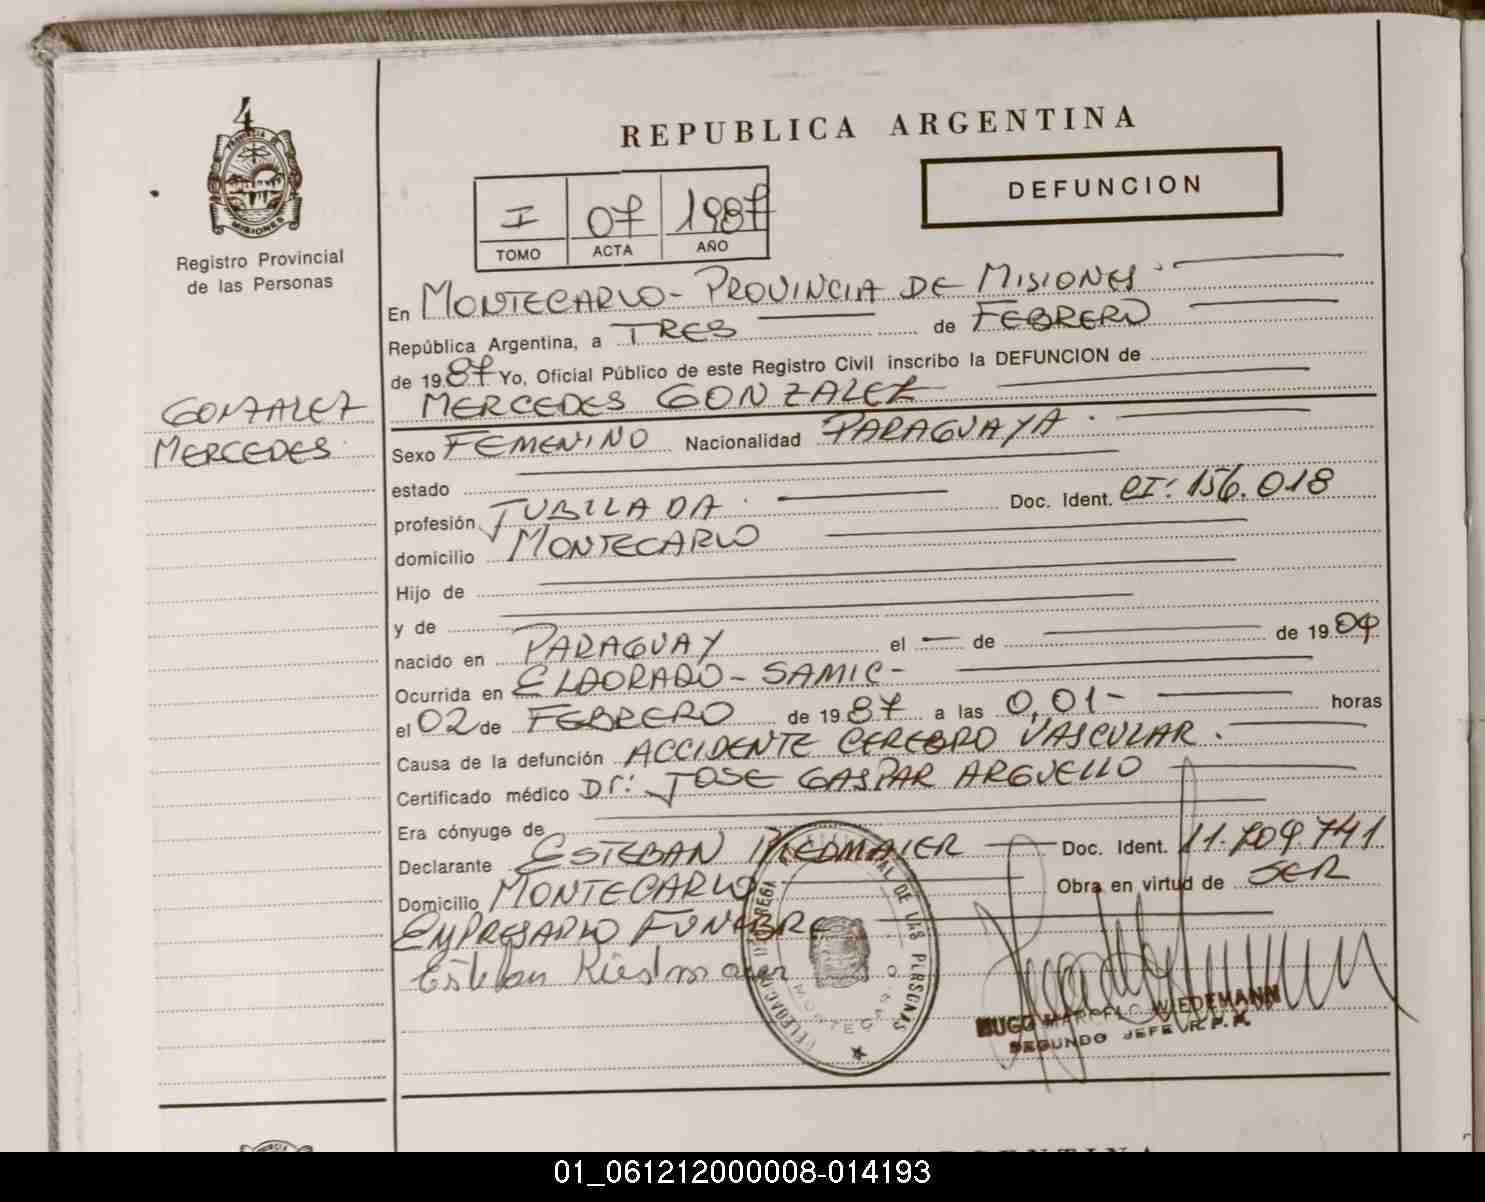 4
PROVINCIA DE
MISIONES
Registro Provincial
de las Personas
GONZALEZ
MERCEDES
REPUBLICA ARGENTINA
DEFUNCION
I 07 1987
TOMO ACTA AÑO
En MONTECARLO - PROVINCIA DE MISIONES
República Argentina, a TRES de FEBRERO
de 1987 Yo, Oficial Público de este Registro Civil inscribo la DEFUNCION de
MERCEDES GONZALEZ
Sexo FEMENINO Nacionalidad PARAGUAYA.
estado
profesión JUBILADA. Doc. Ident. CI: 156.018
domicilio MONTECARLO
Hijo de
y de
nacido en PARAGUAY el — de — de 1909
Ocurrida en ELDORADO - SAMIC -
el 02 de FEBRERO de 1987 a las 0,01 - horas
Causa de la defunción ACCIDENTE CEREBRO VASCULAR.
Certificado médico Dr: JOSE GASPAR ARGUELLO
Era cónyuge de
Declarante ESTEBAN RIEDMAIER Doc. Ident. 11.709.741
Domicilio MONTECARLO Obra en virtud de SER
EMPRESARIO FUNEBRE
Esteban Riedmaier
DE LAS PERSONAS
MONTECARLO
HUGO MARCELO WIEDEMANN
SEGUNDO JEFE R.P.P.
ARGENTINA
01_061212000008-014193